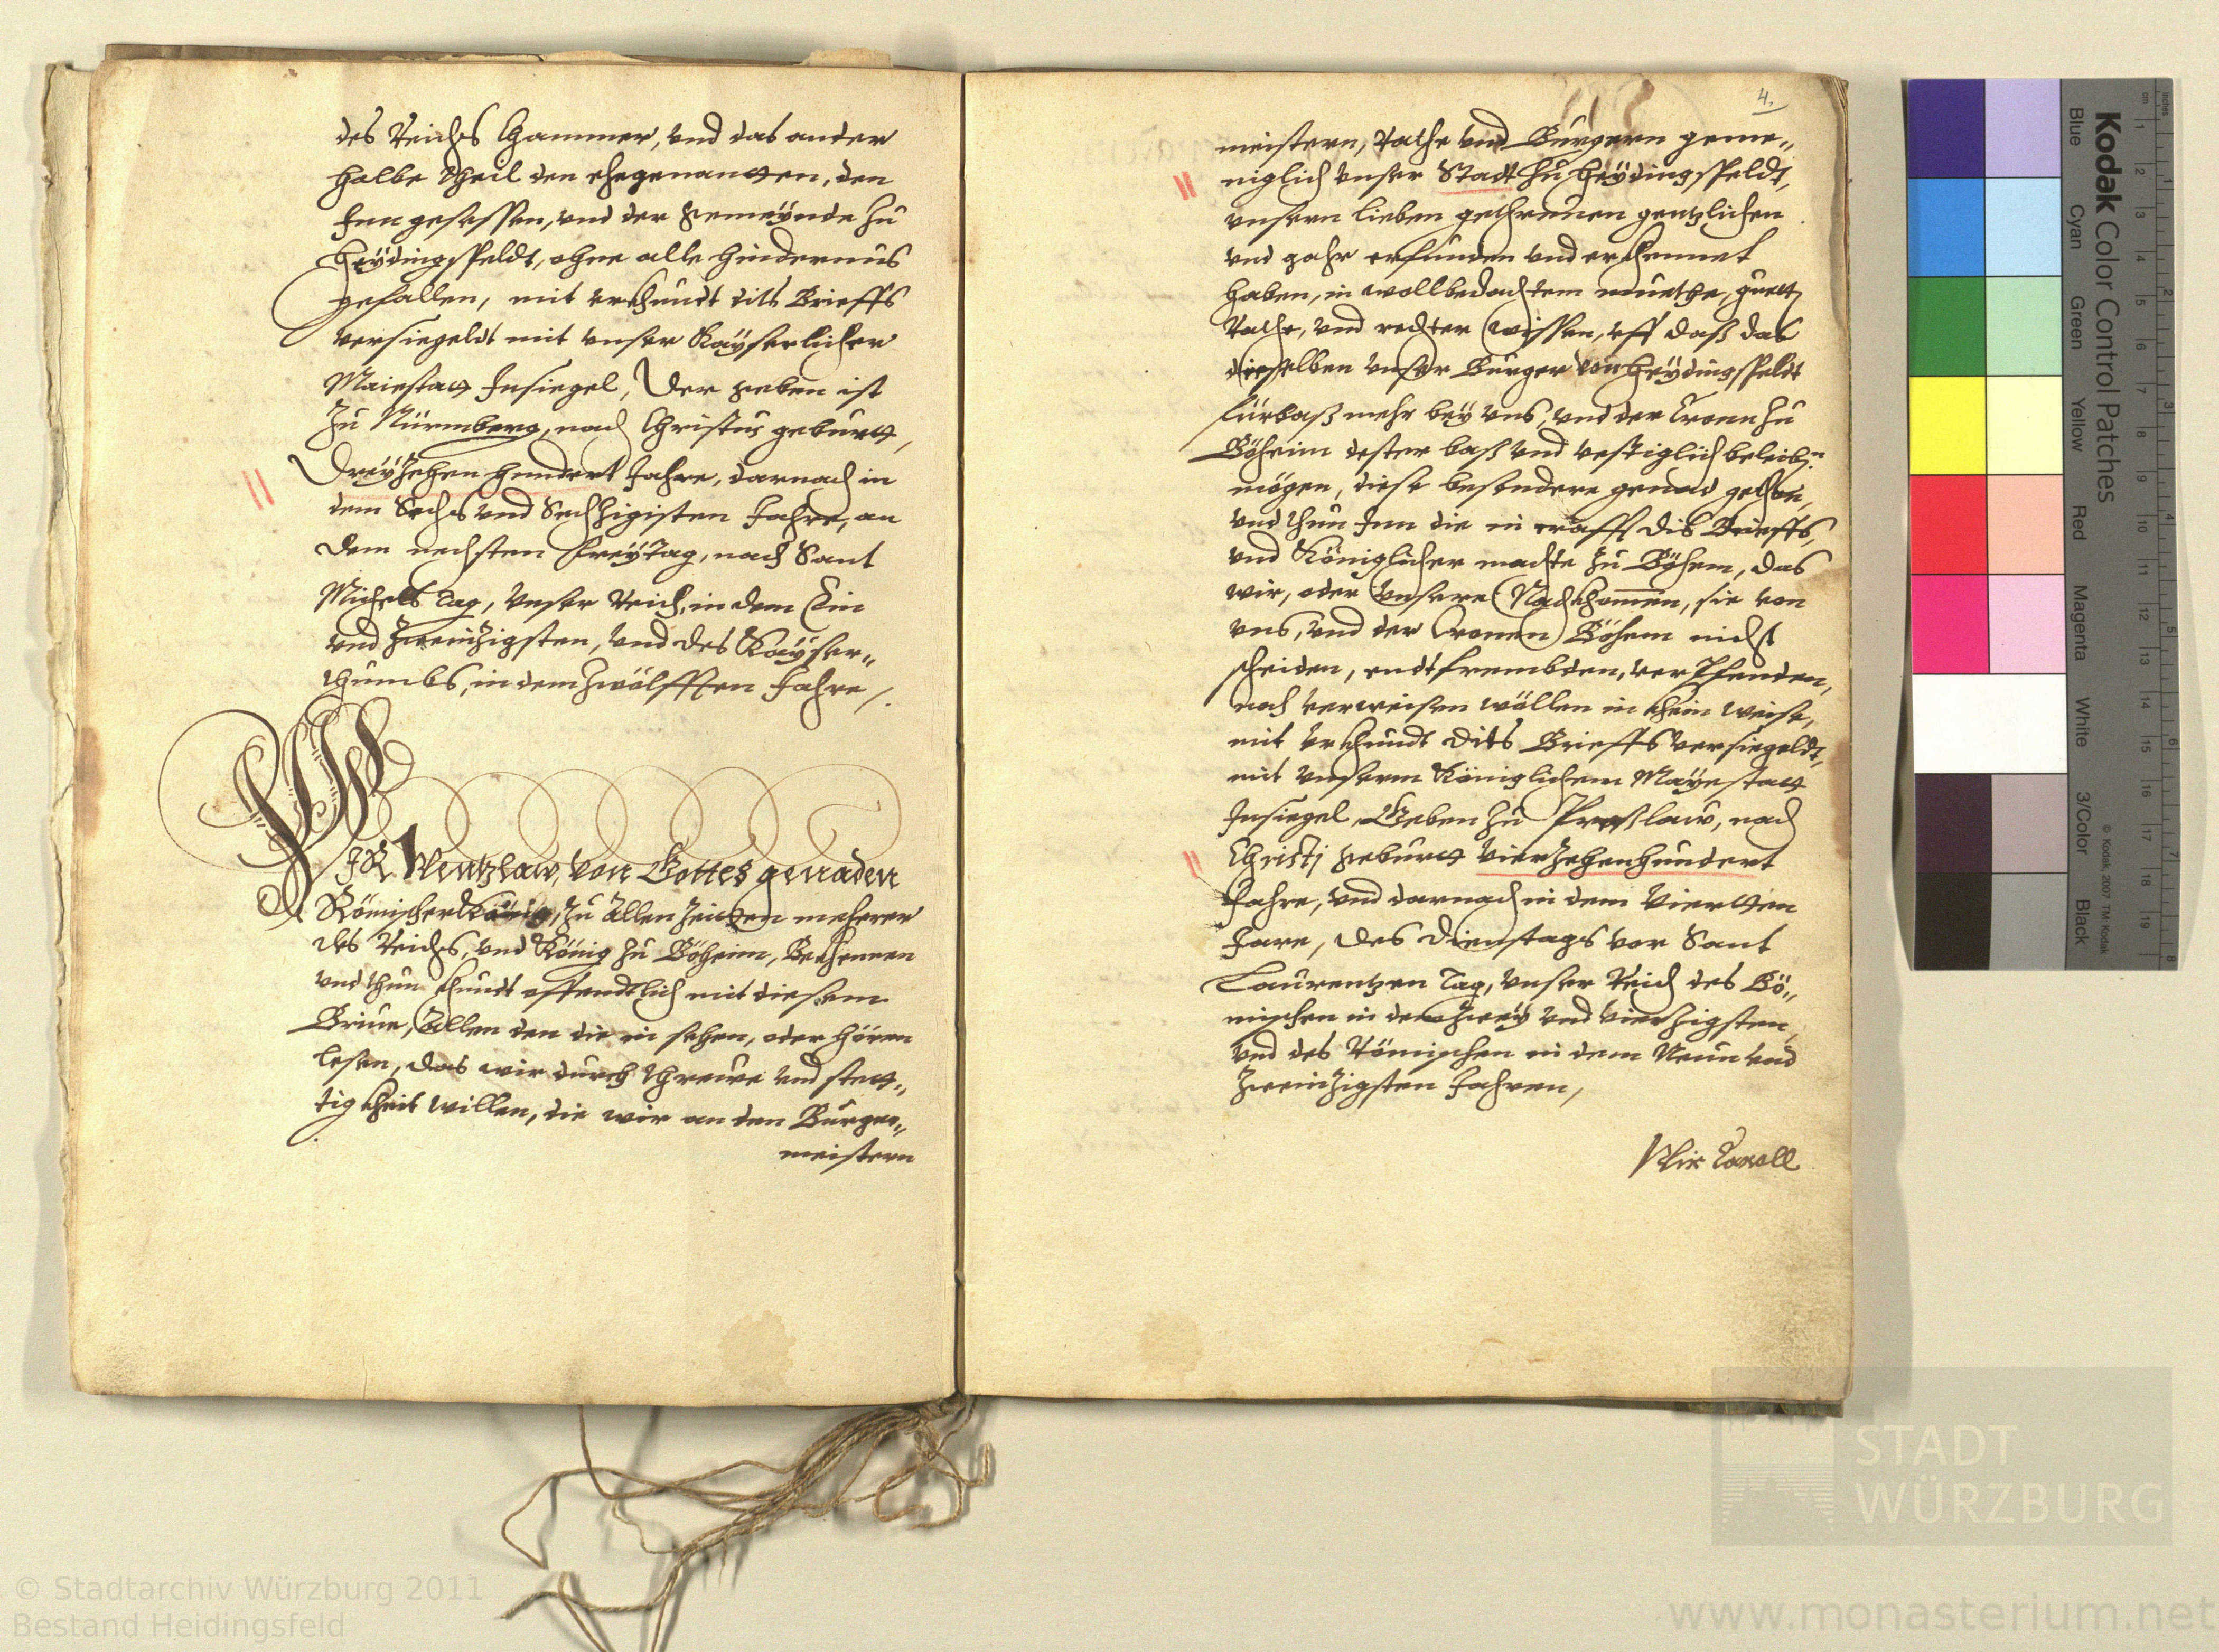 des Reichs Chammer, vnd das ander
halbe Theil den ehegenantten, den
Inngesessen, vnd der gemeynde zu
Heydingsfeldt, ohne alle hindernus
gefallen, mit vrkhundt dits Brieffs
versiegeldt mit vnser Kayserlicher
Maiestatt Insiegel, Der geben ist
Zu Nürmberg, nach Christus geburtt,
Dreyzehen hundert Jahre, darnach in
dem Sechs vnd Sechzigisten Jahre, an
dem nechsten Freytag, nach Sant
Michels Tag, Vnser Reich, in dem Ein
vnd Zweinzigsten, Vnd des Kayser„
thumbs, in dem zwölfften Jahre /.
WIR Wentzlaw, Von Gottes genaden
Römischer König, Zu Allen Zeitten mehrer
des Reichs, vnd König zu Böheim, Bekhennen
vnd thun khundt offendtlich mit diesem
Briue, Allen den die in sehen, oder hören
lesen, Das wir durch threwe vnd stett„
tigkheit willen, die wir an den Burger„
meistern
4.
meistern, Rathe vnd Burgern geme„
niglich vnser Stadt zu Heydingsfeldt,
vnsern lieben gethreuen gentzlichen
vnd gahr erfunden vnd erkhennet
haben, in wollbedachtem muethe, guett
Rathe, vnd rechter wissen, vff daß das
dieselben vnser Burger von Heydingsfeldt
fürbaß mehr bey vns, vnd der Cronn zu
Böheim dester baß vnd vestiglich beleiben
mögen, diese besondere genad gethan,
vnd thun Inn die in crafft dis Brieffs,
vnd Königlicher machte zu Böhem, das
wir, oder Vnsere Nachkhomen, sie von
vns, vnd der Cronen Böhem nicht
scheiden, endtfrembden, verpfenden,
noch verweisen wöllen in khein weise,
mit Vrkhundt dits Brieffs versiegeldt,
mit vnserm Königlichem Mayestatt
Insiegel, Geben zu Preßlaw, nach
Christj geburtt Vierzehenhundert
Jahre, vnd darnach in dem Viertten
Jare, des Dienstags vor Sant
Laurentzen Tag, vnser Reich des Bö„
mischen in dem zwey vnd Vierzigsten,
vnd des Römischen in dem Neun vnd
Zweinzigsten Jahren,
Kodak Color Control Patches
Blue Cyan Green Yellow Red Magenta White 3/Color Black
© Kodak, 2007 TM: Kodak
STADT
WÜRZBURG
© Stadtarchiv Würzburg 2011
Bestand Heidingsfeld
www.monasterium.net